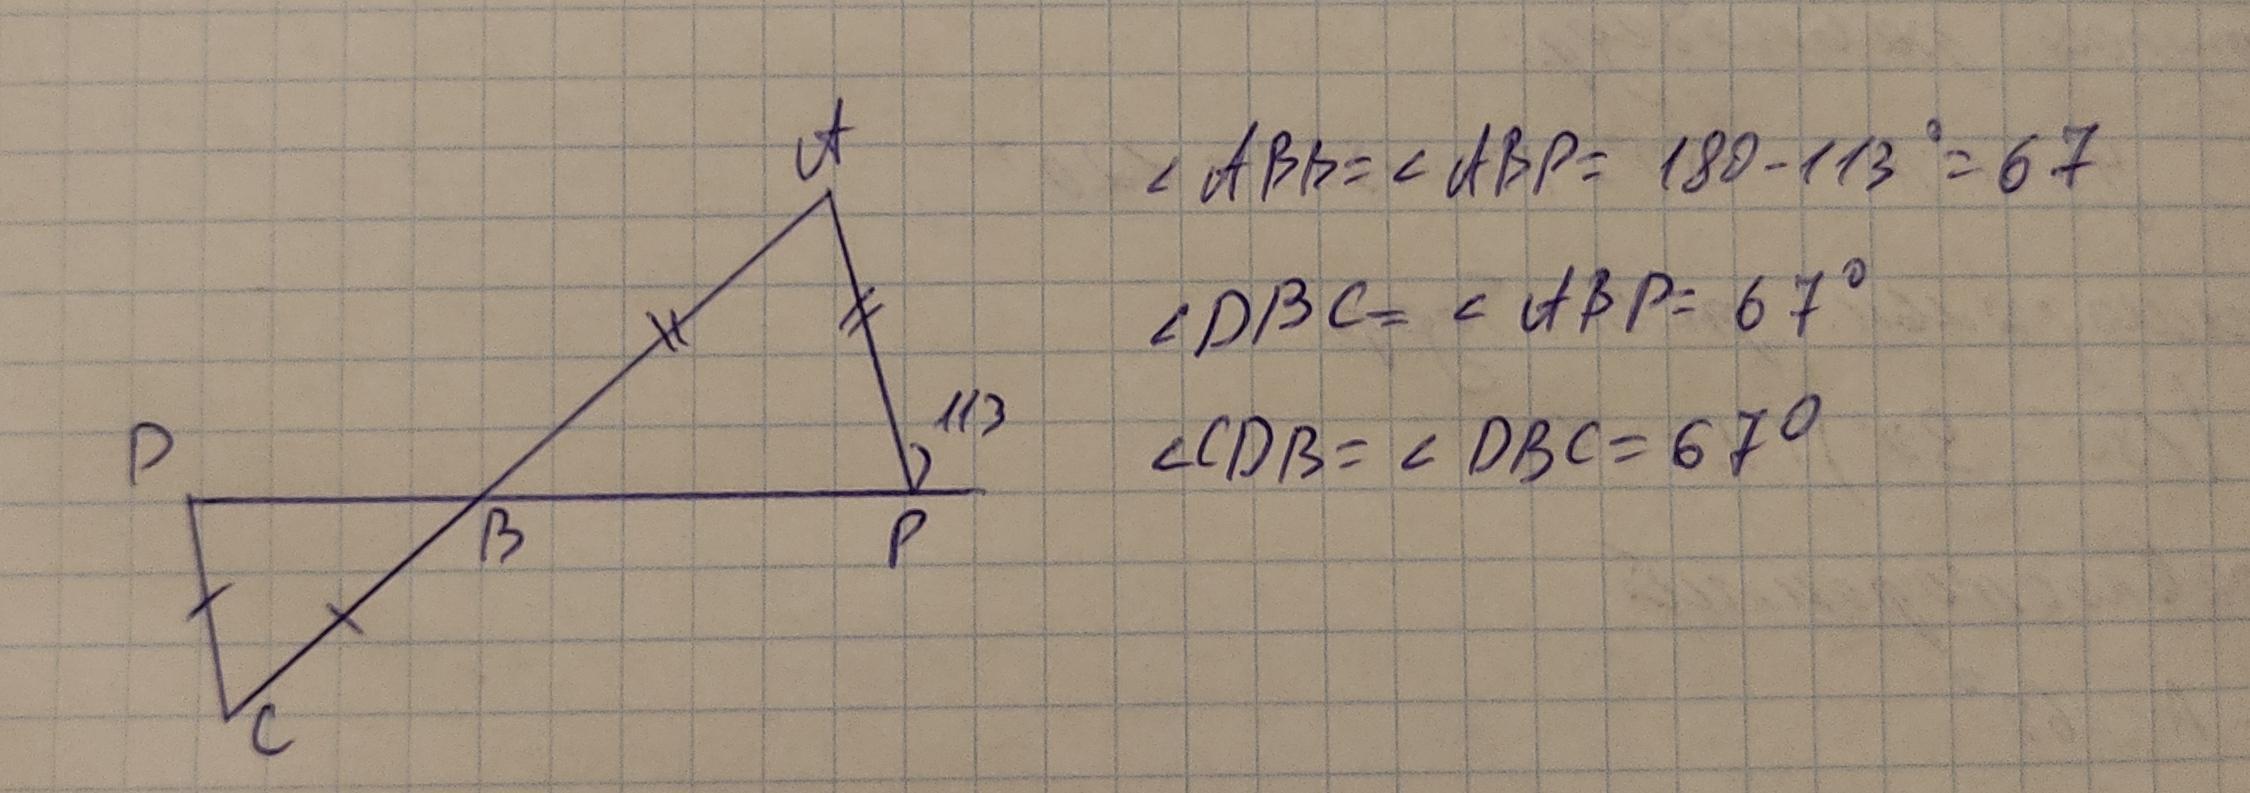 A
113
D
B
P
C
∠ABB=∠ABP= 180-113°=67
∠DBC= ∠ABP= 67°
∠CDB= ∠DBC= 67°